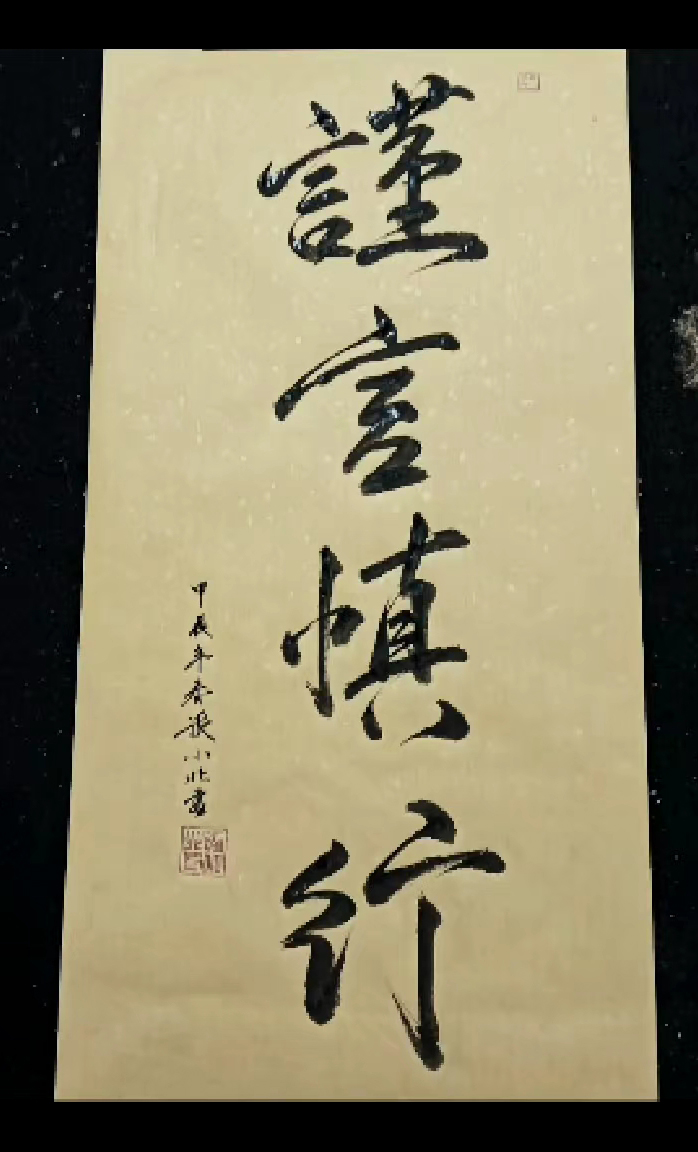 謹言慎行
甲辰年春張小北書